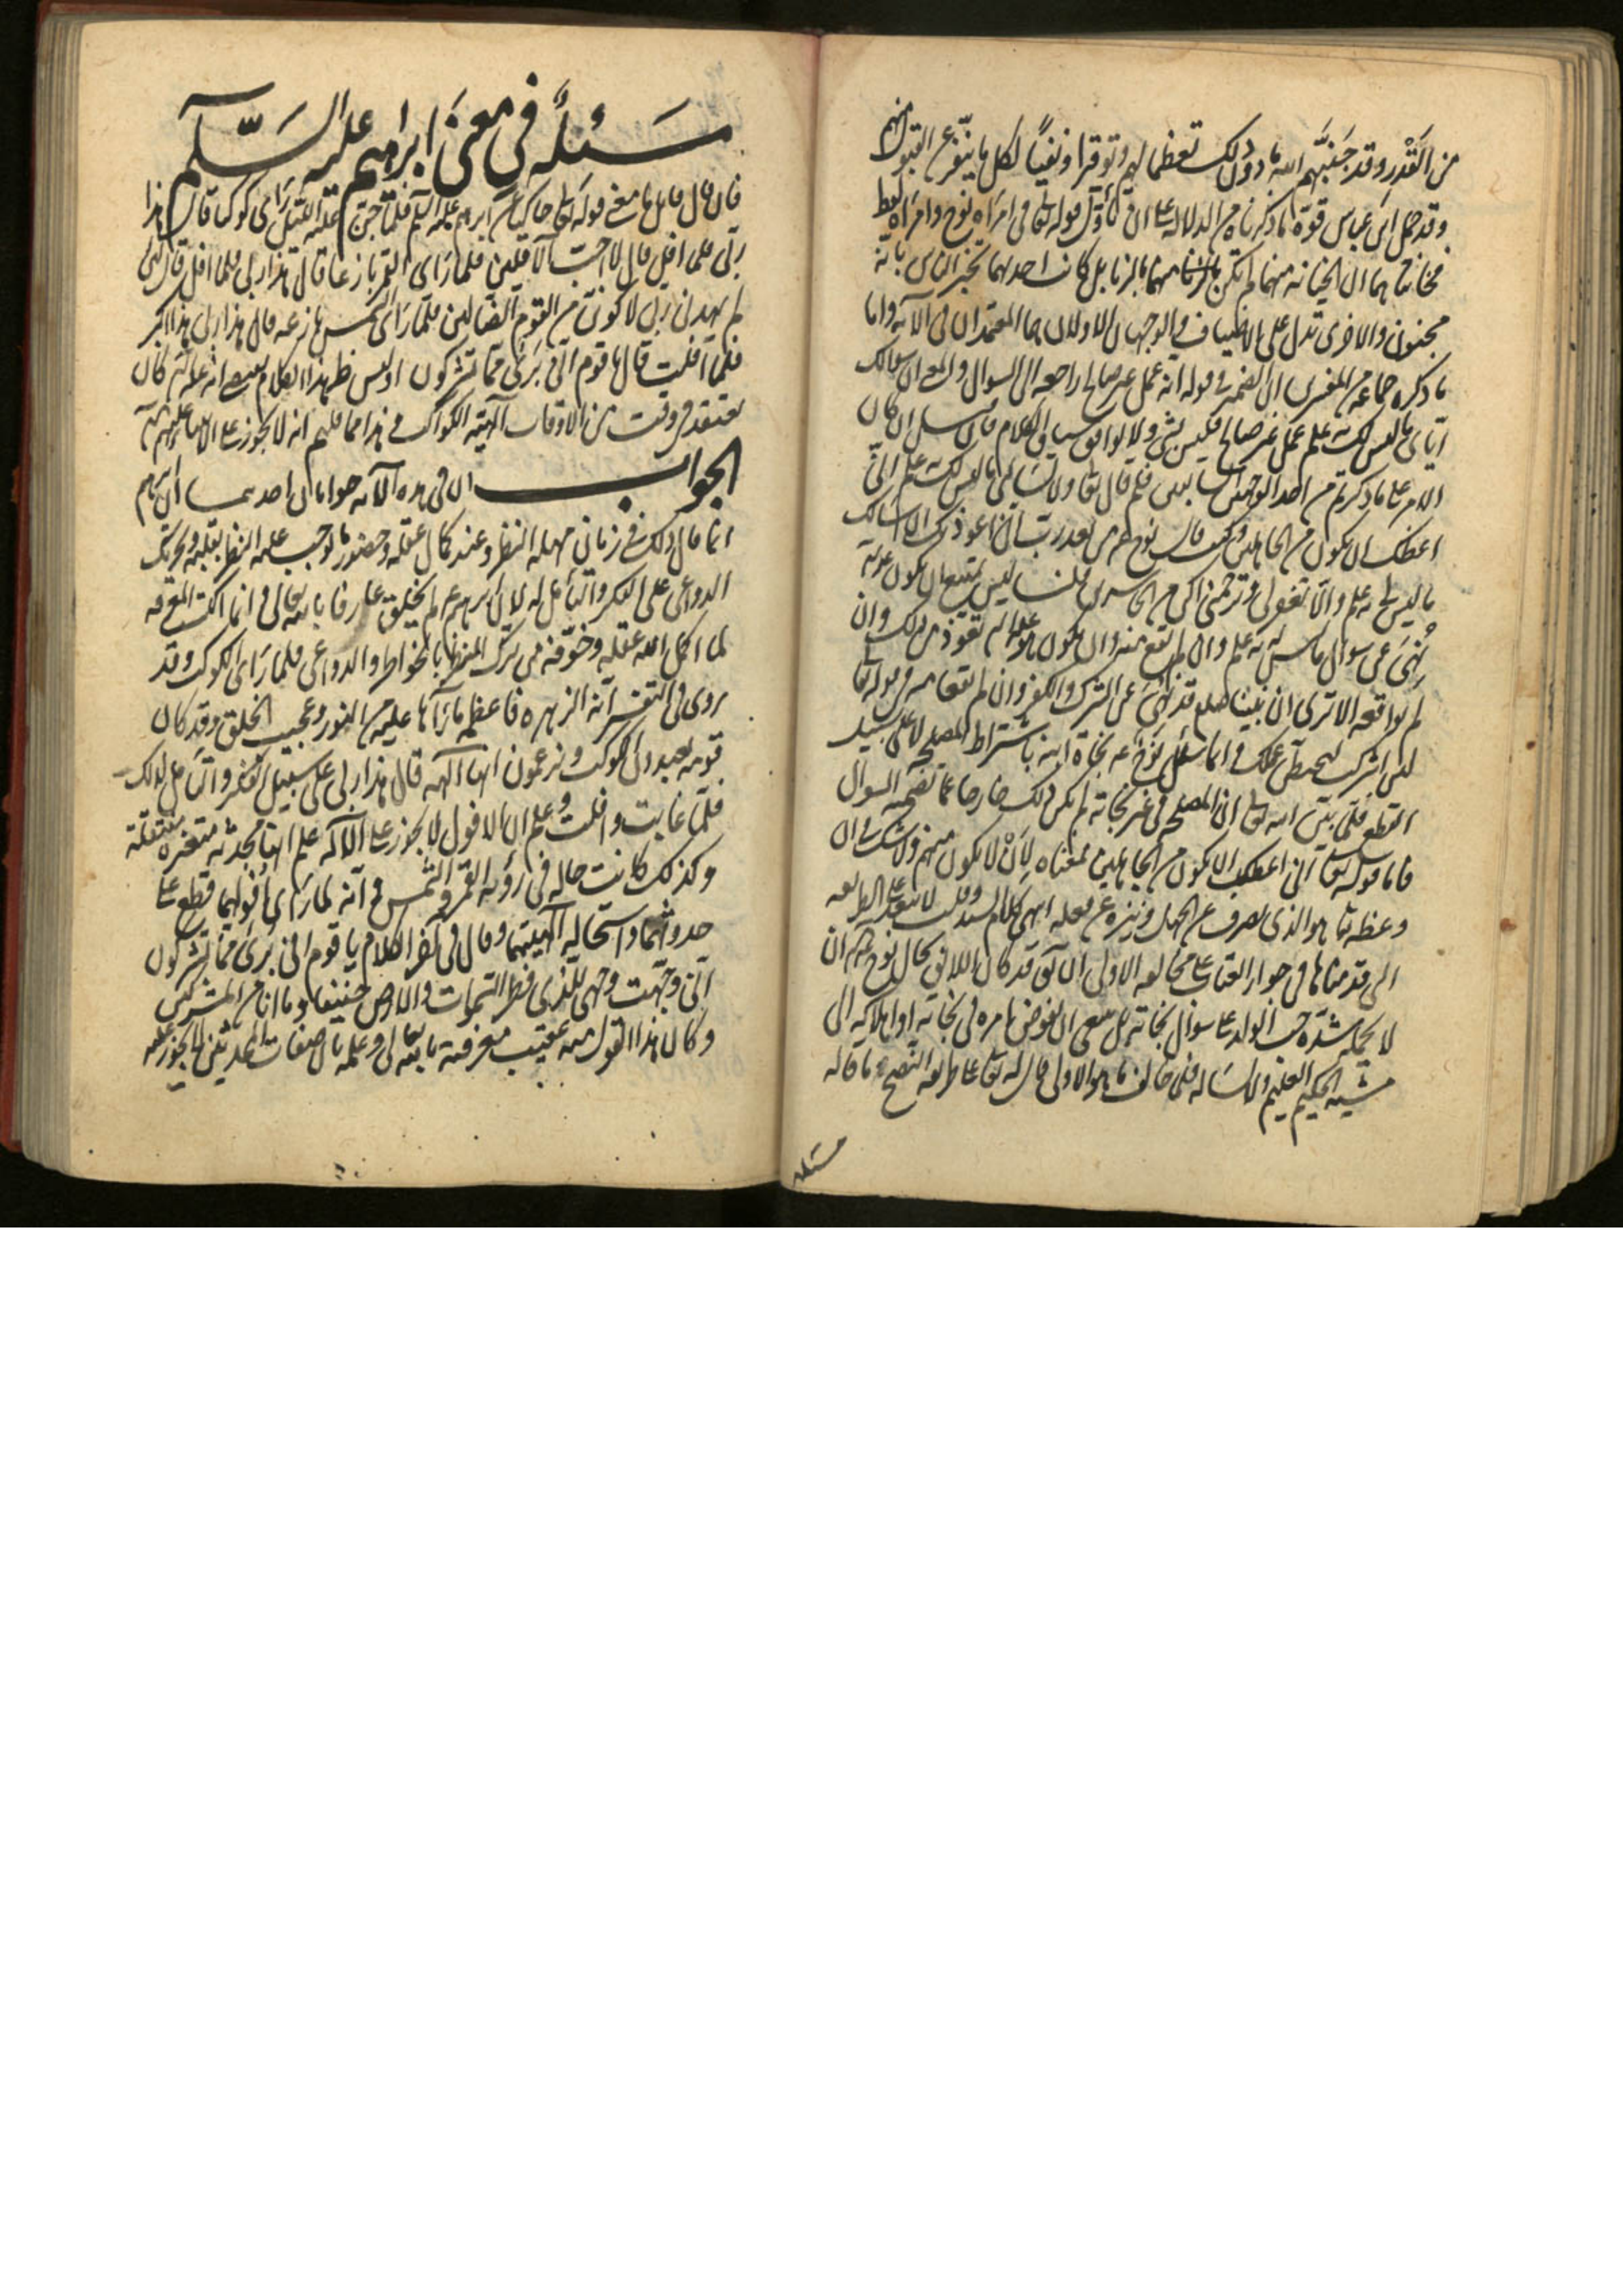 من القذر وقد جنبهم الله تعالى دون ذلك تعظيما لهم وتوقيرا ونفيا لكل ما ينفر عن القبول منهم
وقد حمل ابن عباس قوة ما ذكرناه من الدلالة على ان تأول قوله تعالى في امراة نوح وامراة لوط
فخانتاهما ان الخيانة منهما لم تكن بالزنا بل كانت احديهما تخبر الناس بانه
مجنون والاخرى تدل على الاضياف والوجهان الاولان هما المعتمدان في الآية واما
ما ذكره جماعة من المفسرين ان الضمير في قوله انه عمل غير صالح راجعة الى السوال والمعنى ان سوالك
اياى ما ليس لك به علم عمل غير صالح فليس بشيء ولا يوافق سياق الكلام فان سئل ان كان
الامر على ما ذكرتم من احد الوجهين فلم قال تعالى ولا تسألني ما ليس لك به علم انى
اعظك ان تكون من الجاهلين وكيف قال نوح ع من بعد رب انى اعوذ بك ان اسالك
ما ليس لى به علم والا تغفر لى وترحمنى اكن من الخاسرين قلنا ليس يمتنع ان يكون نوح ع
نهى عن سوال ما ليس له به علم وان لم يقع منه وان يكون هو ع تعوذ من ذلك وان
لم يواقعه الا ترى ان نبينا صلعم قد نهى عن الشرك والكفر وان لم يقعا منه في قوله تعالى
لئن اشركت ليحبطن عملك وانما سئل نوح ع نجاة ابنه باشتراط المصلحة لا على سبيل
القطع فلما بين الله تعالى ان المصلحة في غير نجاته لم يكن ذلك خارجا عما تضمنه السوال
فاما قوله تعالى انى اعظك ان تكون من الجاهلين فمعناه لان لا تكون منهم ولا شك في ان
وعظه تعالى هو الذى يصرف عن الجهل وينزه عن فعله انتهى كلام السيد وقلت لا يبعد على الطريقة
التى قدمناها في جواز العتاب على مخالفة الاولى ان قد كان اللائق بحال نوح ع ان
لا يحمله شدة حب الولد على سوال نجاته بل ينبغى ان يفوض امره في نجاته او اهلاكه الى
مشية الحكيم العليم ولا يساله فلما خالف ما هو الاولى قال له تعالى على طريقة النصح ما قاله
مسئلة
مسئلة في معنى ابراهيم عليه السلام
فان قال قائل ما معنى قوله تعالى حاكيا عن ابرهيم عليه السلم فلما جن عليه الليل رأى كوكبا قال هذا
ربى فلما افل قال لا احب الآفلين فلما رأى القمر بازغا قال هذا ربى فلما افل قال لئن
لم يهدنى ربى لاكونن من القوم الضالين فلما رأى الشمس بازغة قال هذا ربى هذا اكبر
فلما افلت قال يا قوم انى برئ مما تشركون اوليس ظهر هذا الكلام يقتضى انه ع كان
يعتقد في وقت من الاوقات آلهية الكواكب وهذا مما قلتم انه لا يجوز على الانبياء عليهم السلم
الجواب ان في هذه الآية جوابان احدهما ان ابراهيم
انما قال ذلك في زمان مهلة النظر وعند كمال عقله وحضور ما يوجب عليه النظر بقلبه وتحرك
الدواعى على الفكر والتأمل له لان ابرهيم ع لم يخلق عارفا بالله تعالى وانما اكتسب المعرفة
لما اكمل الله عقله وخوفه من ترك النظر بالخواطر والدواعى فلما رأى الكوكب وقد
روى في التفسير انه الزهرة فاعظمه ما رآها عليه من النور وعجيب الخلق وقد كان
قومه يعبدون الكوكب ويزعمون انها آلهة قال هذا ربى على سبيل الفكر والتامل لذلك
فلما غابت وافلت وعلم ان الافول لا يجوز على الآله علم انها محدثة متغيرة منتقلة
وكذلك كانت حاله في رؤية القمر والشمس وانه لما رأى افولهما قطع على
حدوثهما واستحالة الهيتهما وقال في اخر الكلام يا قوم انى برئ مما تشركون
انى وجهت وجهى للذى فطر السموات والارض حنيفا وما انا من المشركين
وكان هذا القول منه عقيب معرفته بالله تعالى وعلمه بان صفات المحدثين لا يجوز عليه